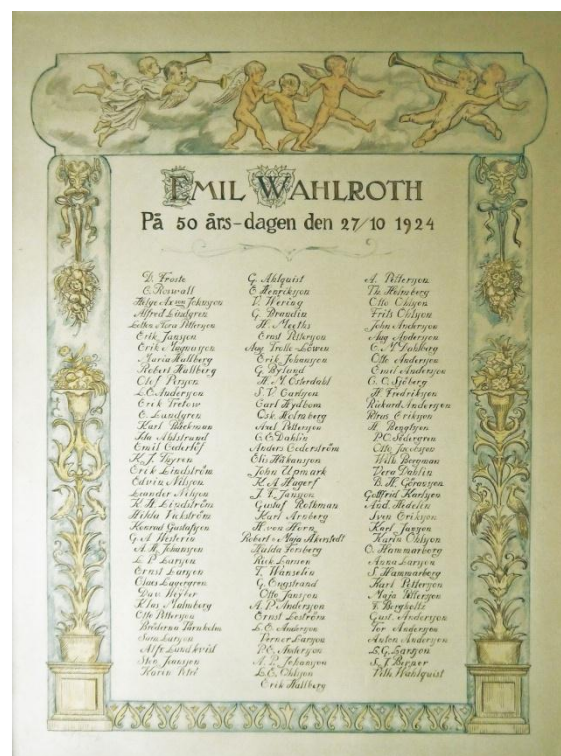 EMIL WAHLROTH
På 50 års-dagen den 27/10 1924
D. Froste
E. Roswall
Helge Ax:son Johnsson
Alfred Lindgren
Lotten Flora Pettersson
Erik Jansson
Erik Magnusson
Maria Hallberg
Robert Hallberg
Olof Persson
L.E. Andersson
Erik Tretow
E. Lundgren
Karl Bäckman
Ida Ahlstrand
Emil Cederlöf
K.J. Thyren
Erik Lindström
Edvin Nilsson
Leander Nilsson
K.H. Lindström
Hilda Vickström
Konrad Gustafsson
G.A. Westerin
A.H. Johansson
L.P. Larsson
Ernst Larsson
Claes Lagergren
Dav. Heyber
Klas Malmberg
Otto Pettersson
Bröderna Törnholm
Sara Larsson
Alfr. Lundkvist
Sten Jansson
Karin Petré
G. Ahlquist
E. Henriksson
V. Wering
G. Brandin
H. Meeths
Ernst Pettersson
Aug Trolle-Löwen
Erik Johansson
G. Rylund
H.M. Österdahl
S.V. Carlsson
Carl Hydbom
Osk. Holmberg
Axel Pettersson
C.E. Dahlin
Anders Cederström
Elis Håkansson
John Upmark
K.A. Hagerf
J.F. Jansson
Gustaf Rothman
Karl Arnberg
H. von Horn
Robert o Maja Åkerstedt
Hulda Forsberg
Rick Larsson
T. Wänselin
G. Engstrand
Otto Jansson
A.P. Andersson
Ernst Leström
L.E. Andersson
Verner Larsson
P.E. Andersson
A.P. Johansson
L.E. Ohlsson
Erik Hallberg
A. Pettersson
Th. Holmberg
Otto Ohlsson
Frits Ohlsson
John Andersson
Aug Andersson
C.M. Dahlberg
Otto Andersson
Emil Andersson
C.O. Sjöberg
H. Fredriksson
Rickard Andersson
Petrus Eriksson
H. Bengtsson
P.O. Södergren
Otto Jacobsson
Will. Bergman
Vera Dahlin
B.H. Göransson
Gottfrid Karlsson
And. Hedelin
Sven Eriksson
Karl Jaeson
Karin Ohlsson
O. Hammarberg
Anna Larsson
S. Hammarberg
Karl Pettersson
Maja Pettersson
F. Bergholtz
Gust. Andersson
Tor Andersson
Anton Andersson
L.G. Larsson
S.J. Berner
Pelle Wahlquist